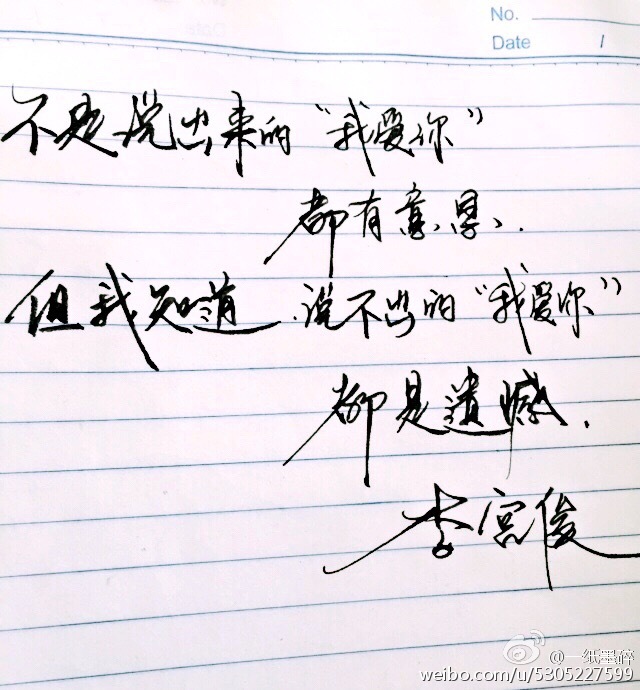 No.
Date /
不是说出来的“我爱你”
都有意思.
但我知道.说不出的“我爱你”
都是遗憾.
李宫俊
@一纸墨碎
weibo.com/u/5305227599